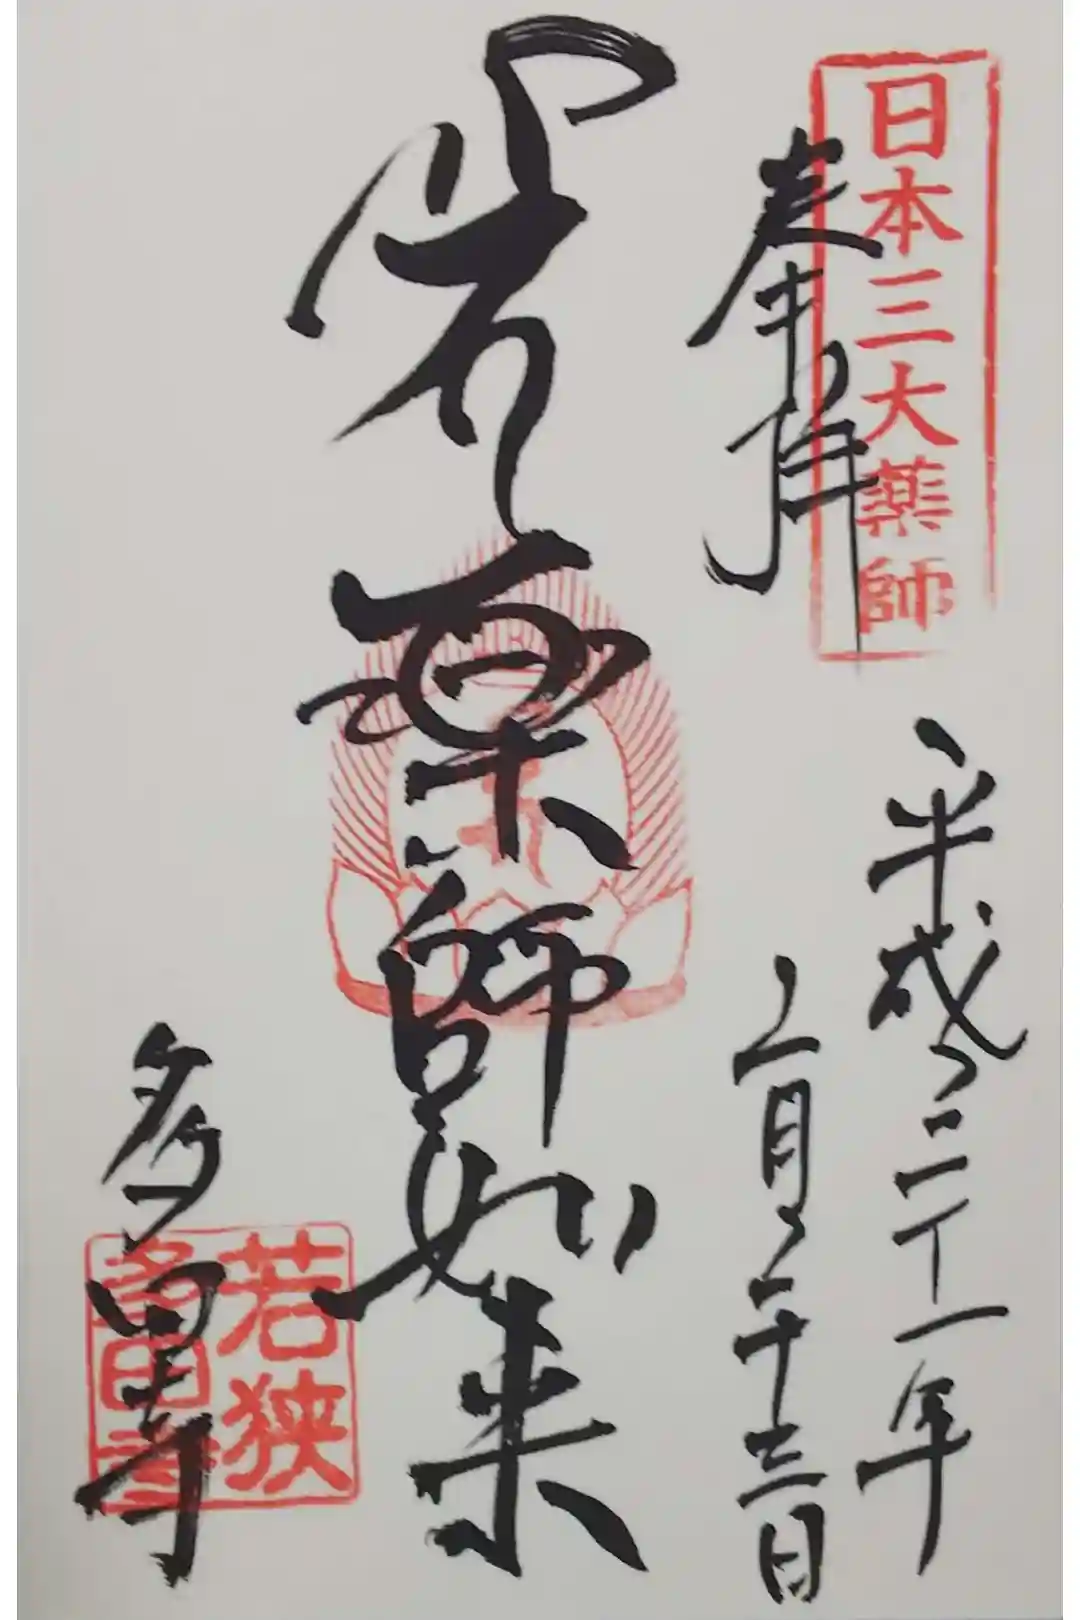 日本三大薬師
奉拝
平成二十一年
月二十三日
薬師如来
多田寺
若狭
多田寺